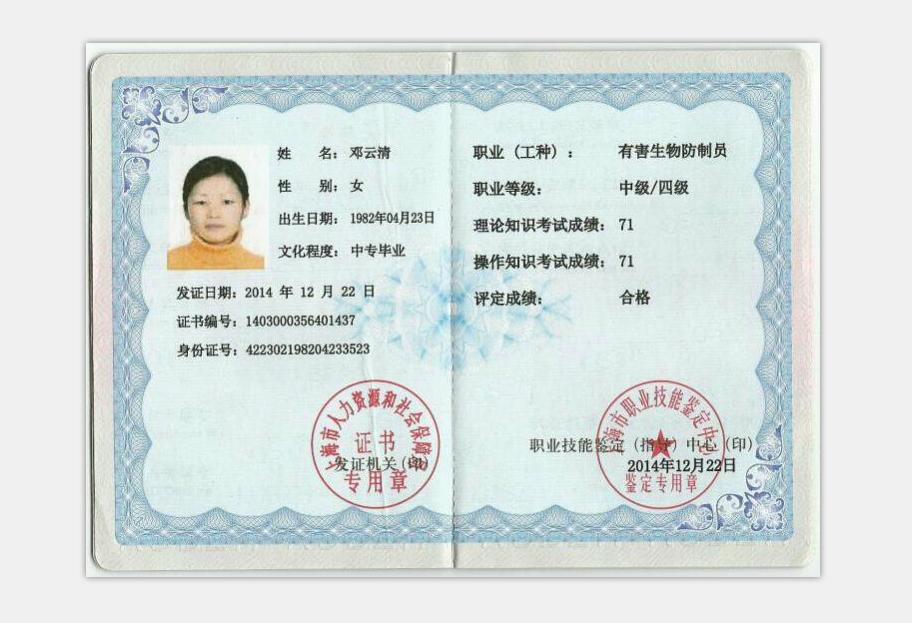 姓 名：邓云清
性 别：女
出生日期：1982年04月23日
文化程度：中专毕业
发证日期：2014 年 12 月 22 日
证书编号：1403000356401437
身份证号：422302198204233523
上海市人力资源和社会保障局
证书
发证机关(印)
专用章
职业（工种）：有害生物防制员
职业等级：中级/四级
理论知识考试成绩：71
操作知识考试成绩：71
评定成绩：合格
上海市职业技能鉴定中心
职业技能鉴定（指导）中心（印）
2014年12月22日
鉴定专用章